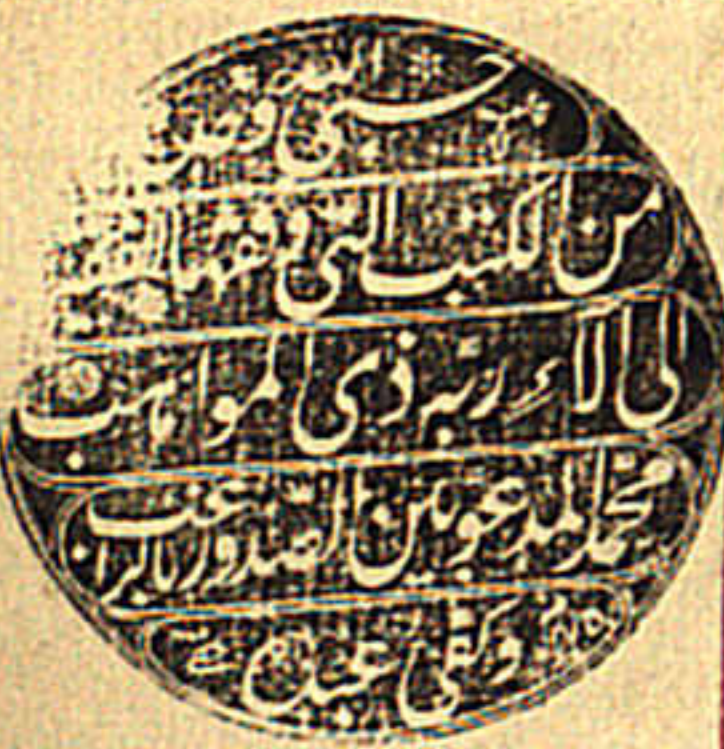 حسبى الله
من الكتب التى وقفها
الى آلاء ربه ذى المواهب
محمد المدعو بين الصدور بالراغب
وكفى عبده